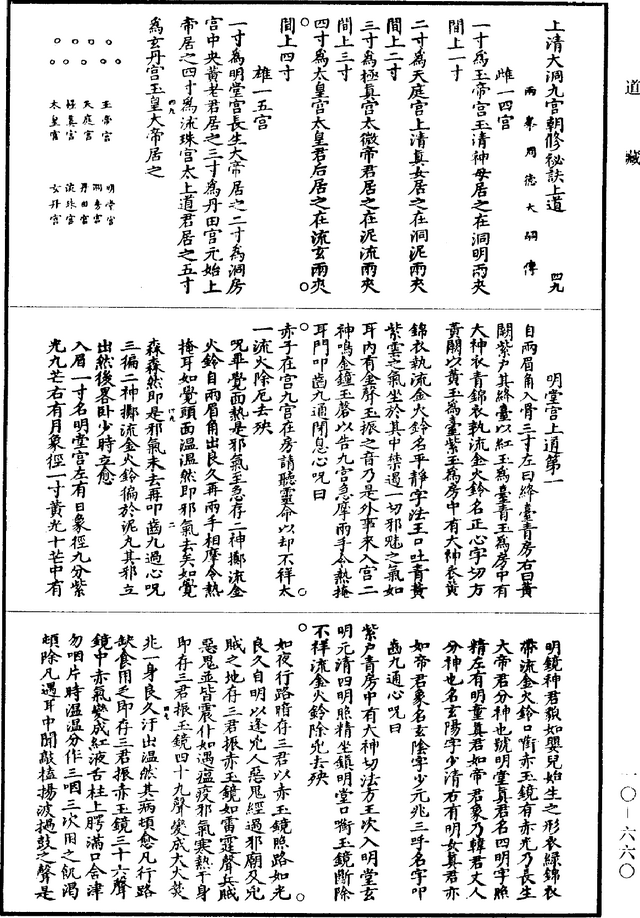 道藏
上清大洞九宮朝修祕訣上道 四九
雨泉周德大嗣傳
雌一四宮
一寸為玉帝宮玉清神母居之在洞明兩夾
間上一寸
二寸為天庭宮上清真女居之在洞泥兩夾
間上二寸
三寸為極真宮太微帝君居之在泥流兩夾
間上三寸
四寸為太皇宮太皇君后居之在流玄兩夾
間上四寸
雄一五宮
一寸為明堂宮長生大帝居之二寸為洞房
宮中央黃老君居之三寸為丹田宮元始上
帝居之四寸為流珠宮太上道君居之五寸
為玄丹宮玉皇大帝居之
玉帝宮 明堂宮
天庭宮 洞房宮
極真宮 丹田宮
太皇宮 流珠宮
玄丹宮
明堂宮上道第一
自兩眉角入骨三寸左曰絳臺青房右曰黃
闕紫戶其絳臺以紅玉為臺青玉為房中有
大神衣青錦衣執流金火鈴名正心字切方
黃闕以黃玉為臺紫玉為房中有大神衣黃
錦衣執流金火鈴名平靜字法王口吐青黃
紫雲之氣坐於其中禁遏一切邪魅之氣如
耳內有金聲玉振之音乃是外事來入宮二
神鳴金鐘玉磬以告九宮急摩兩手令熱掩
耳門叩齒九通閉息心呪曰
赤子在宮九宮在房請聽靈命以却不祥太
一流火除厄去殃
呪畢覺面熱是邪氣至急存二神擲流金
火鈴自兩眉角出良久再兩手相摩令熱
掩耳如覺頭面溫溫然即邪氣去矣如覺
森森然即是邪氣未去再叩齒九過心呪
三徧二神擲流金火鈴徧於泥丸其邪立
出然後畧臥少時立愈
入眉一寸名明堂宮左有日象徑九分紫
光九芒右有月象徑一寸黃光十芒中有
明鏡神君貌如嬰兒始生之形衣綠錦衣
帶流金火鈴口銜赤玉鏡有赤光乃長生
大帝君分神也號明堂真君名四明字照
精左有明童真君如帝君象乃韓君丈人
分神也名玄陽字少清右有明女真君亦
如帝君象名玄陰字少元兆三呼名字叩
齒九通心呪曰
紫戶青房中有大神切法方王次入明堂玄
明元清四明照精坐鎮明堂口銜玉鏡斷除
不祥流金火鈴除兇去殃
如夜行路暗存三君以赤玉鏡照路如光
良久自明以逢兇人惡鬼經過邪廟及兇
賊之地存三君振赤玉鏡如雷霆聲兵賊
惡鬼並皆震仆如遇瘟疫邪氣寒熱干身
即存三君振玉鏡四十九聲變成大火焚
兆一身良久汗出溫然其病頓愈凡行路
缺食用乏即存三君振赤玉鏡三十六聲
鏡中赤氣變成紅液舌柱上腭滿口合津
勿咽片時溫溫分作三咽三次用之飢渴
頓除凡遇耳中聞敲榼揚波撾鼓之聲是
一〇—六六〇